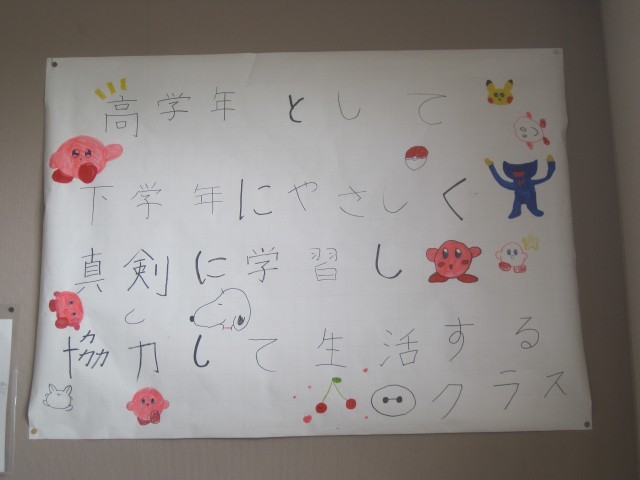 高学年として
下学年にやさしく
真剣に学習し
協力して生活する
クラス